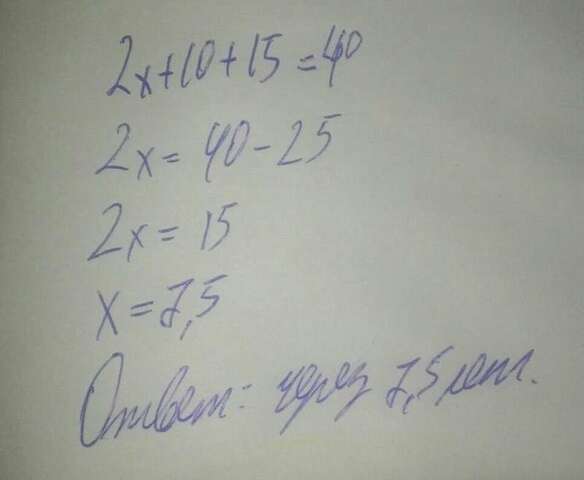 2x+10+15=40
2x=40-25
2x=15
x=7,5
Ответ: через 7,5 лет.